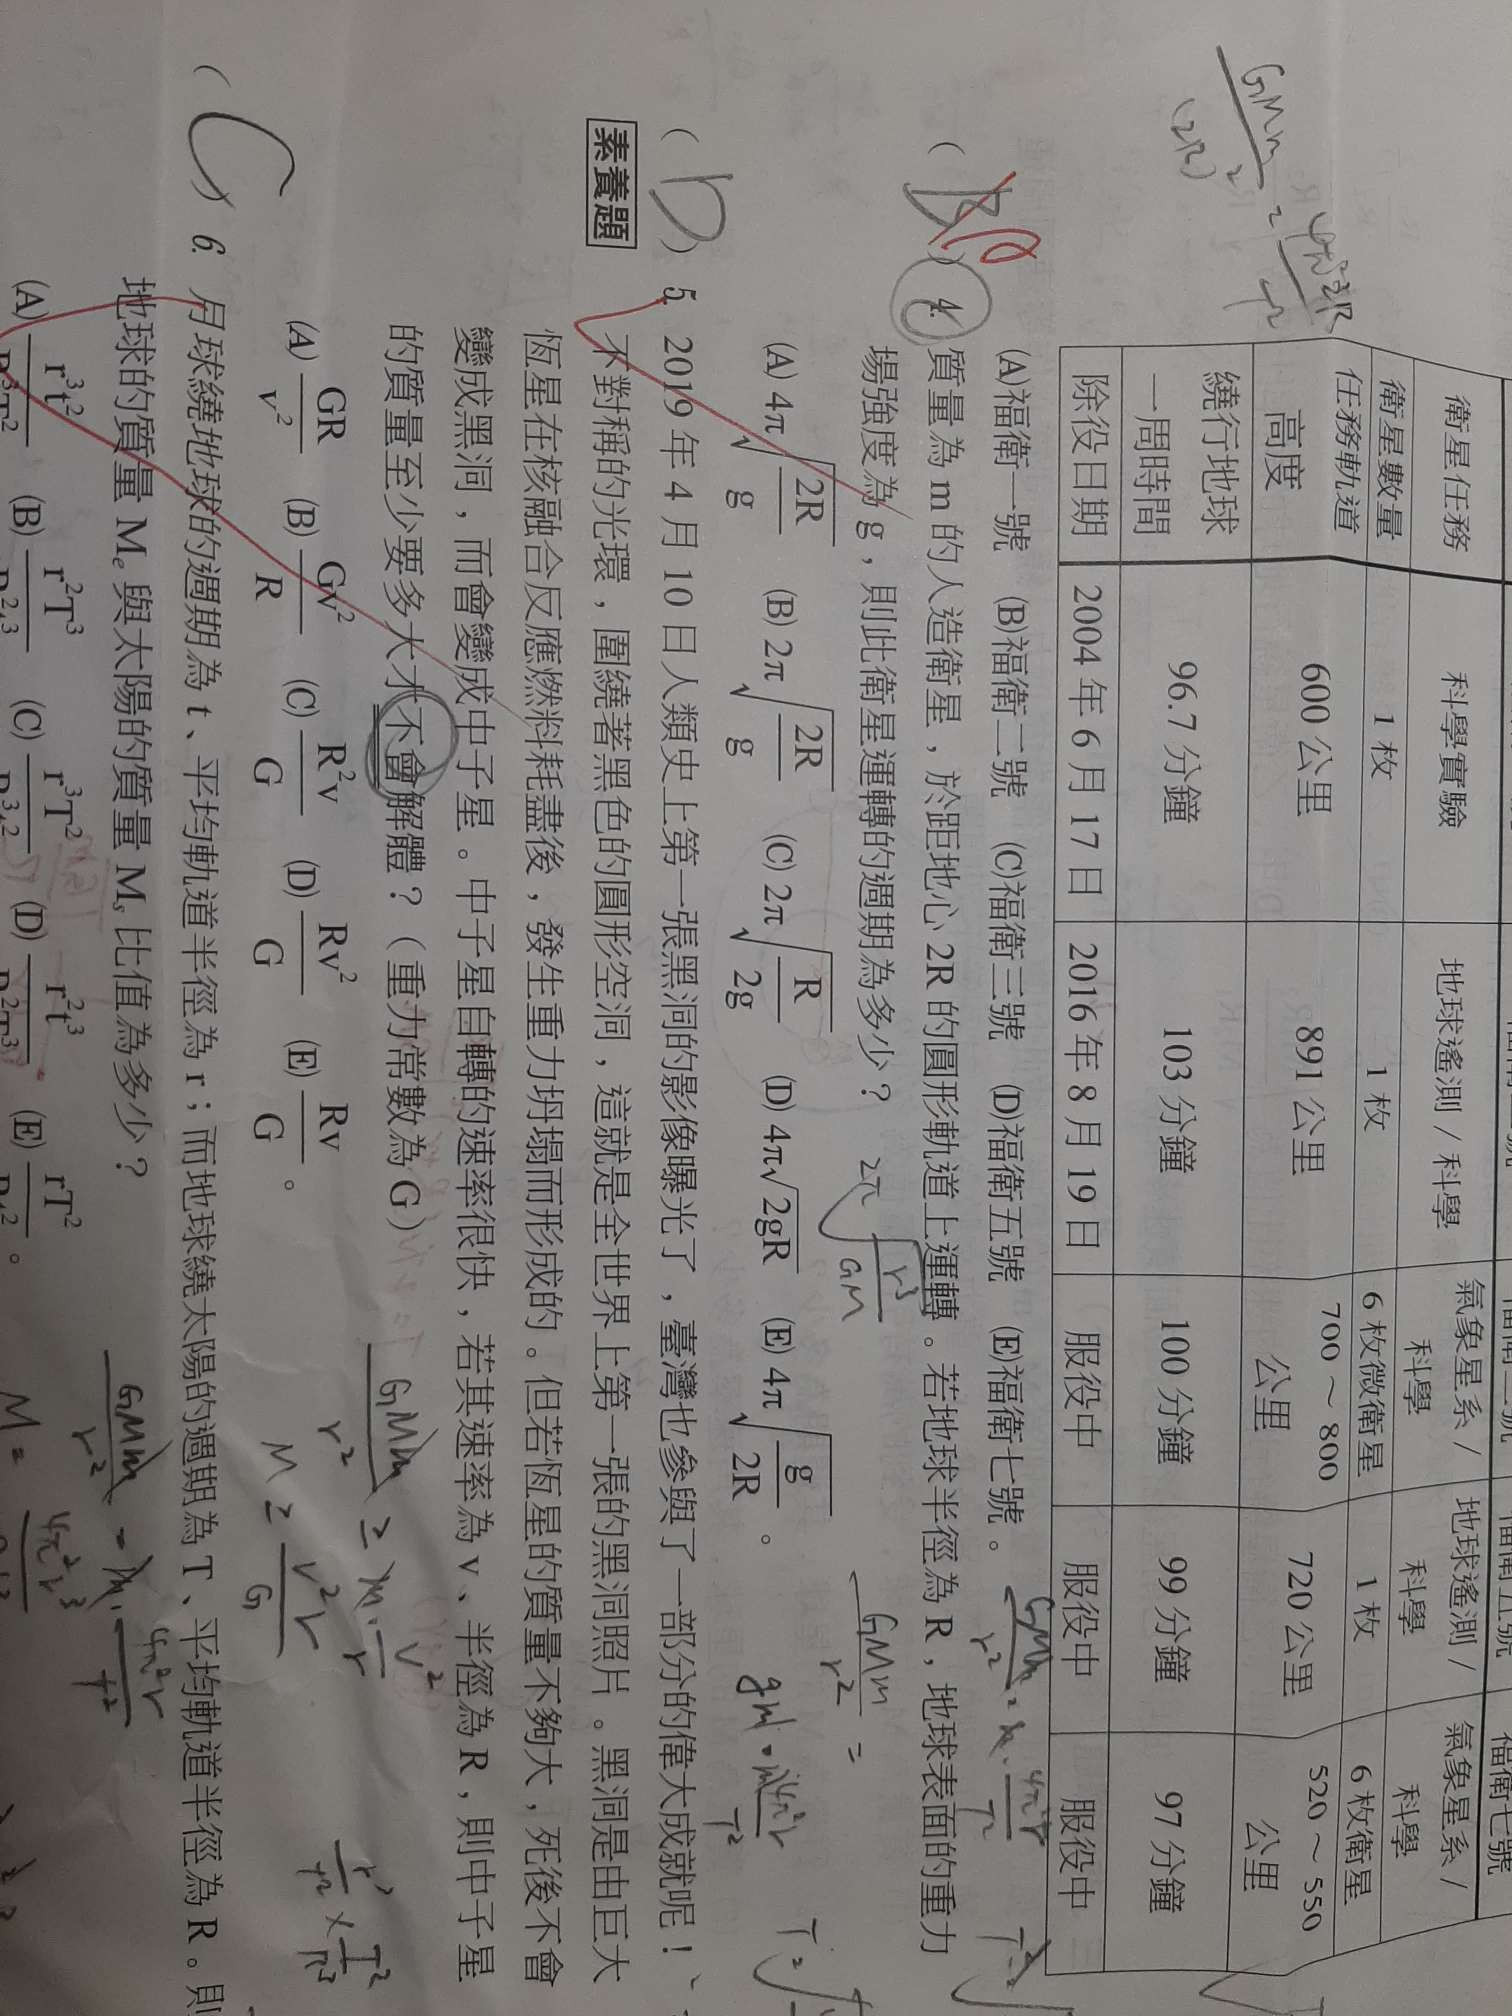 衛星任務 科學實驗 地球遙測 / 科學 氣象星系 / 科學 地球遙測 / 科學 氣象星系 / 科學
衛星數量 1 枚 1 枚 6 枚微衛星 1 枚 6 枚衛星
任務軌道高度 600 公里 891 公里 700 ~ 800 公里 720 公里 520 ~ 550 公里
繞行地球一周時間 96.7 分鐘 103 分鐘 100 分鐘 99 分鐘 97 分鐘
除役日期 2004 年 6 月 17 日 2016 年 8 月 19 日 服役中 服役中 服役中
(A)福衛一號 (B)福衛二號 (C)福衛三號 (D)福衛五號 (E)福衛七號。
4. 質量為 m 的人造衛星，於距地心 2R 的圓形軌道上運轉。若地球半徑為 R，地球表面的重力
場強度為 g，則此衛星運轉的週期為多少？
(A) 4π√(2R/g) (B) 2π√(2R/g) (C) 2π√(R/2g) (D) 4π√(2gR) (E) 4π√(g/2R)。
( D ) 5. 2019 年 4 月 10 日人類史上第一張黑洞的影像曝光了，臺灣也參與了一部分的偉大成就呢！
素養題
不對稱的光環，圍繞著黑色的圓形空洞，這就是全世界上第一張的黑洞照片。黑洞是由巨大
恆星在核融合反應燃料耗盡後，發生重力坍塌而形成的。但若恆星的質量不夠大，死後不會
變成黑洞，而會變成中子星。中子星自轉的速率很快，若其速率為 v、半徑為 R，則中子星
的質量至少要多大才不會解體？（重力常數為 G）
(A) GR/v² (B) Gv²/R (C) R²v/G (D) Rv²/G (E) Rv/G。
( C ) 6. 月球繞地球的週期為 t、平均軌道半徑為 r；而地球繞太陽的週期為 T、平均軌道半徑為 R。則
地球的質量 Mₑ 與太陽的質量 Mₛ 比值為多少？
(A) r³t²/R³T² (B) r²T³/R²t³ (C) r³T²/R³t² (D) r²t³/R²T³ (E) rT²/Rt²。